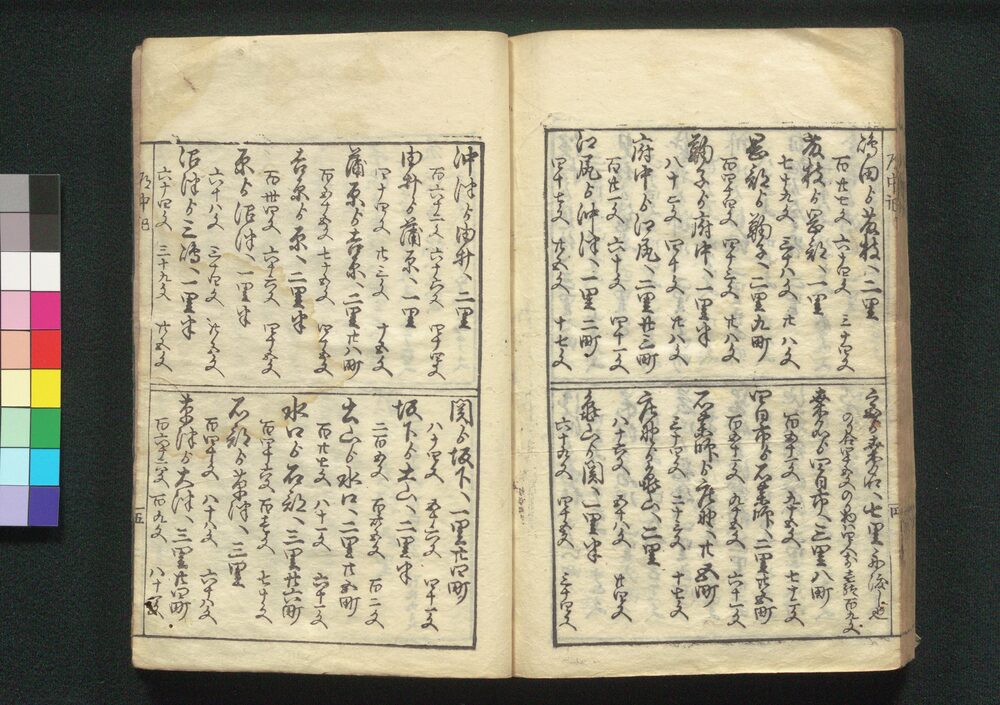 嶋田ゟ藤枝へ二里
百廿七文 六十四文 三十四文
藤枝ゟ岡部へ一里
七十九文 三十八文 廿八文
岡部ゟ鞠子へ二里九町
百四十四文 四十三文 廿八文
鞠子ゟ府中へ一里半
八十二文 四十文 廿八文
府中ゟ江尻へ二里廿三町
百廿一文 六十文 四十一文
江尻ゟ沖津へ一里二町
四十七文 廿五文 十七文
宮ゟ桑名へ七里
桑名ゟ四日市へ三里八町
百五十二文 九十五文 七十二文
四日市ゟ石薬師へ二里廿五町
百五十文 九十五文 六十一文
石薬師ゟ庄野へ廿五町
三十四文 二十三文 十七文
庄野ゟ亀山へ二里
八十六文 五十八文 廿四文
亀山ゟ関へ一里半
六十五文 四十五文 三十四文
四
沖津ゟ由井へ二里
百六十二文 六十六文 四十四文
由井ゟ蒲原へ一里
四十四文 廿三文 十五文
蒲原ゟ吉原へ二里廿八町
百五十五文 七十五文 四十五文
吉原ゟ原へ二里半
百廿四文 六十六文 四十五文
原ゟ沼津へ一里半
六十八文 三十四文 廿六文
沼津ゟ三嶋へ一里半
六十四文 三十九文 廿五文
関ゟ坂下へ一里廿四町
八十四文 五十六文 四十一文
坂下ゟ土山へ二里半
二百五文 百五十文 百二文
土山ゟ水口へ二里廿五町
百廿七文 八十二文 六十一文
水口ゟ石部へ三里廿六町
百四十六文 百七文 七十文
石部ゟ草津へ三里
百四十文 八十八文 六十八文
草津ゟ大津へ三里廿四町
百六十二文 百九文 八十文
五